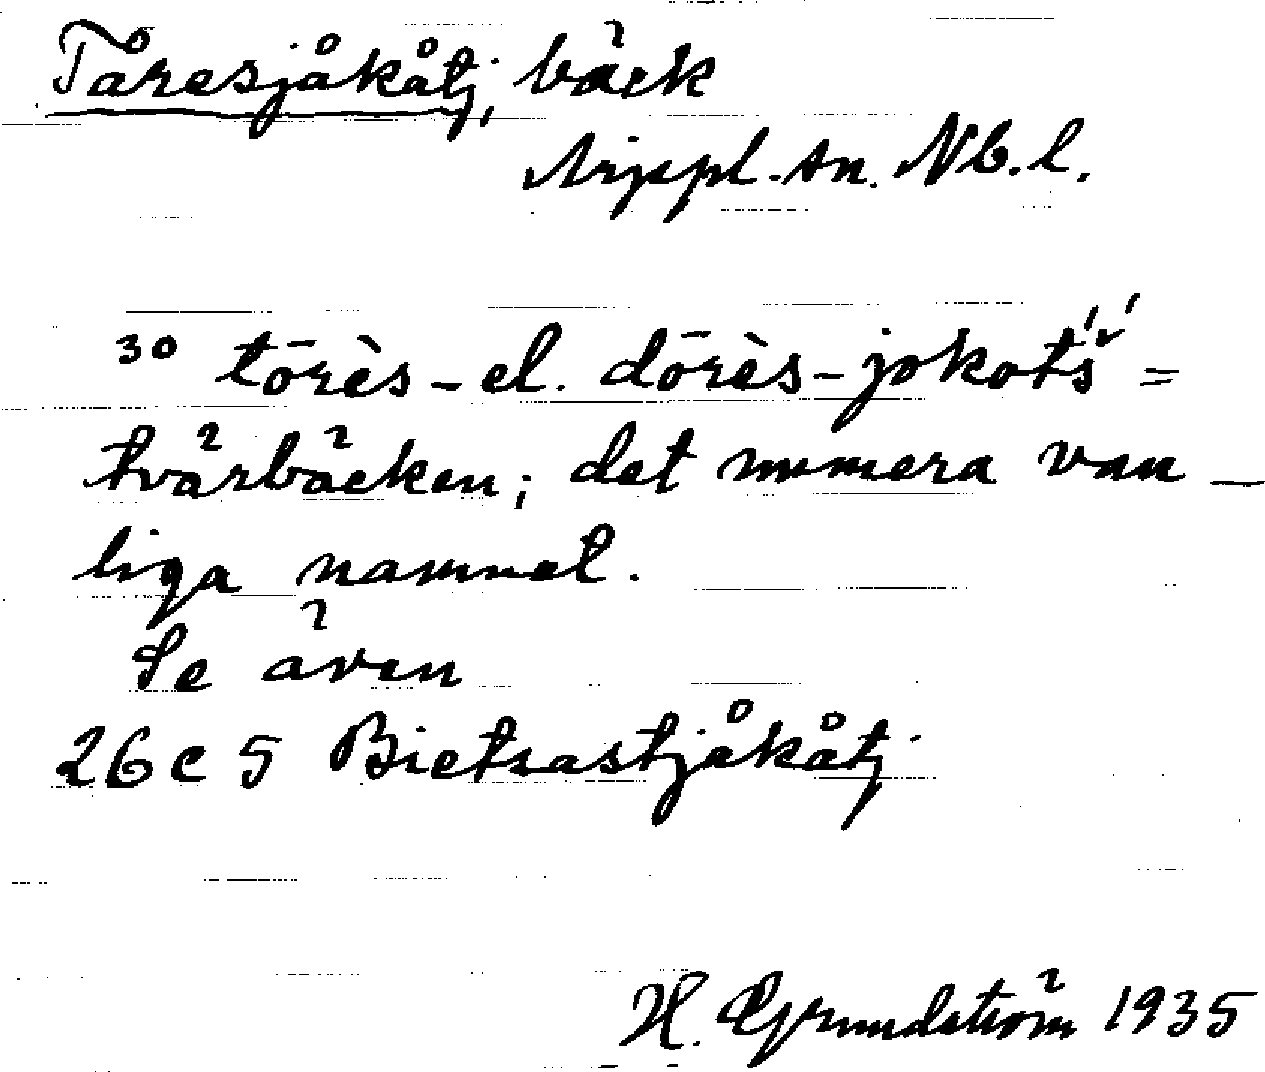 Tåresjåkåtj, bäck
Arjepl. sn. Nb. l.
30 tōrès- el. dōrès-jokot́š́ =
tvärbäcken; det numera van-
liga namnet.
Se även
26 c 5 Bietsastjåkåtj
H. Grundström 1935